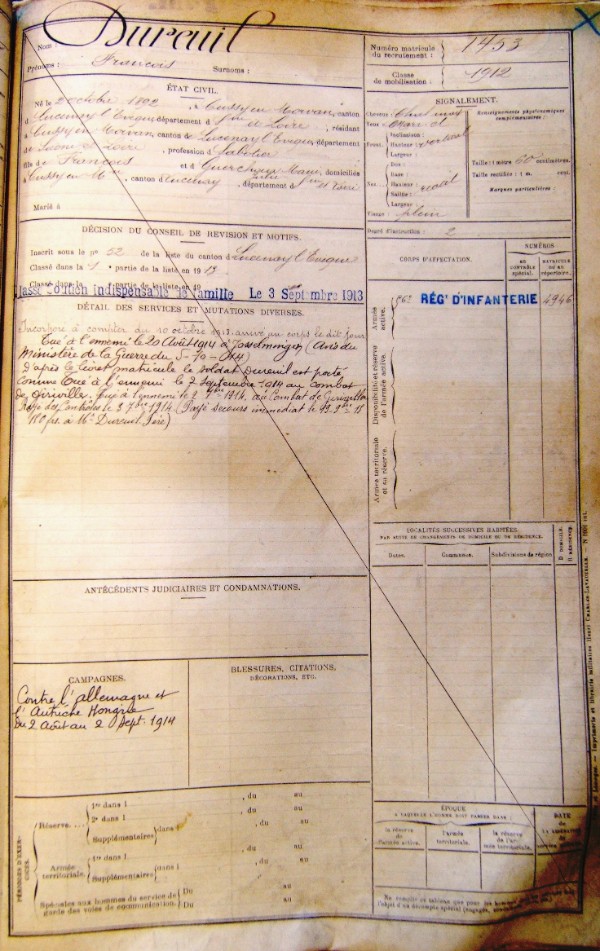 Nom : Dureuil
Prénoms : François Surnoms :
Numéro matricule du recrutement : 1453
Classe de mobilisation : 1912
ÉTAT CIVIL.
Né le 2 octobre 1892, à Cussy en Morvan, canton
d Lucenay l'Evêque, département d Sne et Loire, résidant
à Cussy en Morvan, canton de Lucenay l'Evêque, département
de Saône et Loire, profession d Sabotier
fils de François et d , domiciliés
à Cussy en Mn, canton d Lucenay, département d Sne et Loire
Marié à
SIGNALEMENT.
Cheveux
Yeux
Inclinaison :
Front. Hauteur : vertical
Largeur :
Dos :
Base :
Nez Hauteur :
Saillie :
Largeur :
Visage : plein
Renseignements physionomiques complémentaires :
Taille : 1 mètre 60 centimètres.
Taille rectifiée : 1 m. cent.
Marques particulières :
Degré d'instruction : 2
DÉCISION DU CONSEIL DE RÉVISION ET MOTIFS.
Inscrit sous le n° 52 de la liste du canton d Lucenay l'Evêque
Classé dans la 1 partie de la liste en 1913
Classé dans la partie de la liste en 19
Classé soutien indispensable de famille Le 3 Septembre 1913
DÉTAIL DES SERVICES ET MUTATIONS DIVERSES.
Incorporé à compter du 10 octobre 1913. arrivé au corps le dit jour
Tué à l'ennemi le 20 Août 1914 à (Avis du
Ministère de la Guerre du
D'après le livret matricule le soldat Dureuil est porté
comme tué à l'ennemi le 2 Septembre 1914 au combat
de Giriviller. Tué à l'ennemi le 2 7bre 1914, au Combat de Giriviller
Rayé des Contrôles le 3 7bre 1914. (Payé secours immédiat le
150 frs. à Mr Dureuil Père)
CORPS D'AFFECTATION.
NUMÉROS
AU CONTRÔLE spécial.
MATRICULE OU AU répertoire.
Armée active.
56e RÉGt D'INFANTERIE 4946
Disponibilité et réserve de l'armée active.
Armée territoriale et sa réserve.
LOCALITÉS SUCCESSIVES HABITÉES,
PAR SUITE DE CHANGEMENTS DE DOMICILE OU DE RÉSIDENCE.
Dates. Communes. Subdivisions de région.
ANTÉCÉDENTS JUDICIAIRES ET CONDAMNATIONS.
CAMPAGNES.
Contre l'allemagne et
l'Autriche Hongrie
Du 2 Août au 2 Sept. 1914
BLESSURES, CITATIONS,
DÉCORATIONS, ETC.
PÉRIODES D'EXERCICES.
Réserve.
1re dans l , du au
2e dans l , du au
Supplémentaires dans l , du au
Armée territoriale.
1re dans l , du au
Supplémentaires dans l , du au
Spéciales aux hommes du service de garde des voies de communication. Du au
Du au
ÉPOQUE
A LAQUELLE L'HOMME DOIT PASSER DANS :
la réserve de l'armée active.
l'armée territoriale.
la réserve de l'armée territoriale.
DATE DE LA LIBÉRATION du service